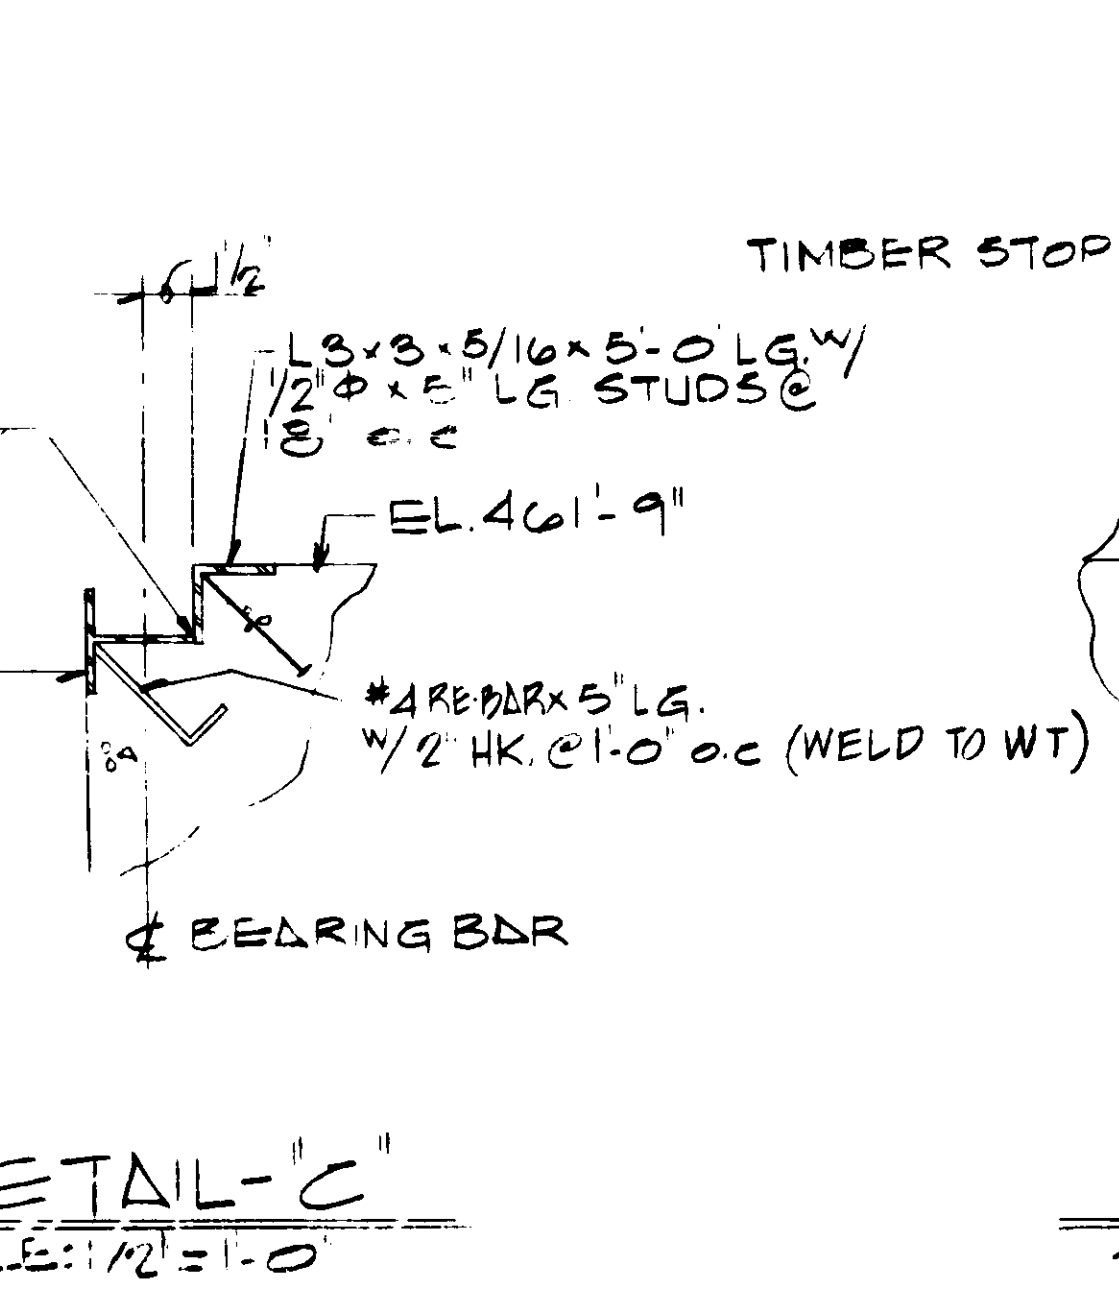 1/2"
TIMBER STOP
L 3 x 3 x 5/16 x 5'-0" LG. W/
1/2" Φ x 5" LG. STUDS @
18" o.c
EL. 461'-9"
#4 RE-BAR x 5" LG.
W/ 2" HK. @ 1'-0" o.c (WELD TO WT)
℄ BEARING BAR
ETAIL-"C"
LE: 1 1/2" = 1'-0"